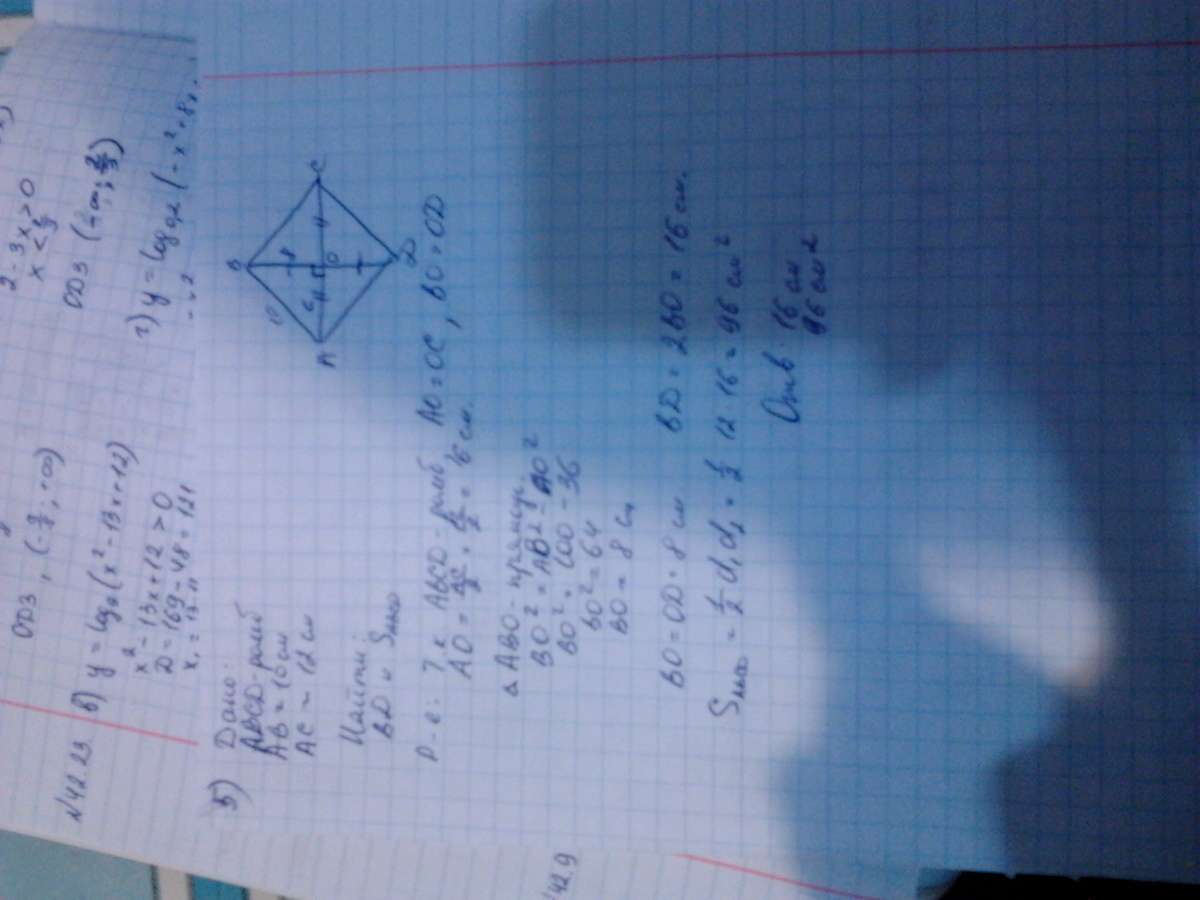 2-3x>0
ОДЗ, (-
; +∞)
№42.23 в) y = log
(x²-13x+12)
x²-13x+12>0
D=169-48=121
г) y = log₀,₂(-x²+8x
5) Дано:
ABCD-ромб
AB=10см
AC=12см
Найти:
BD и Sромб
B
A
C
D
O
10
6
8
Р-е: Т.к ABCD-ромб AO=OC, BO=OD
AO=AC/2=12/2=6см.
△ABO-прямоуг.
BO²=AB²-AO²
BO²=100-36
BO²=64
BO=8см
BO=OD=8см BD=2BO=16см.
Sромб=½d₁d₂=½ 12·16=96см²
Отв: 16см
96см²
42.9